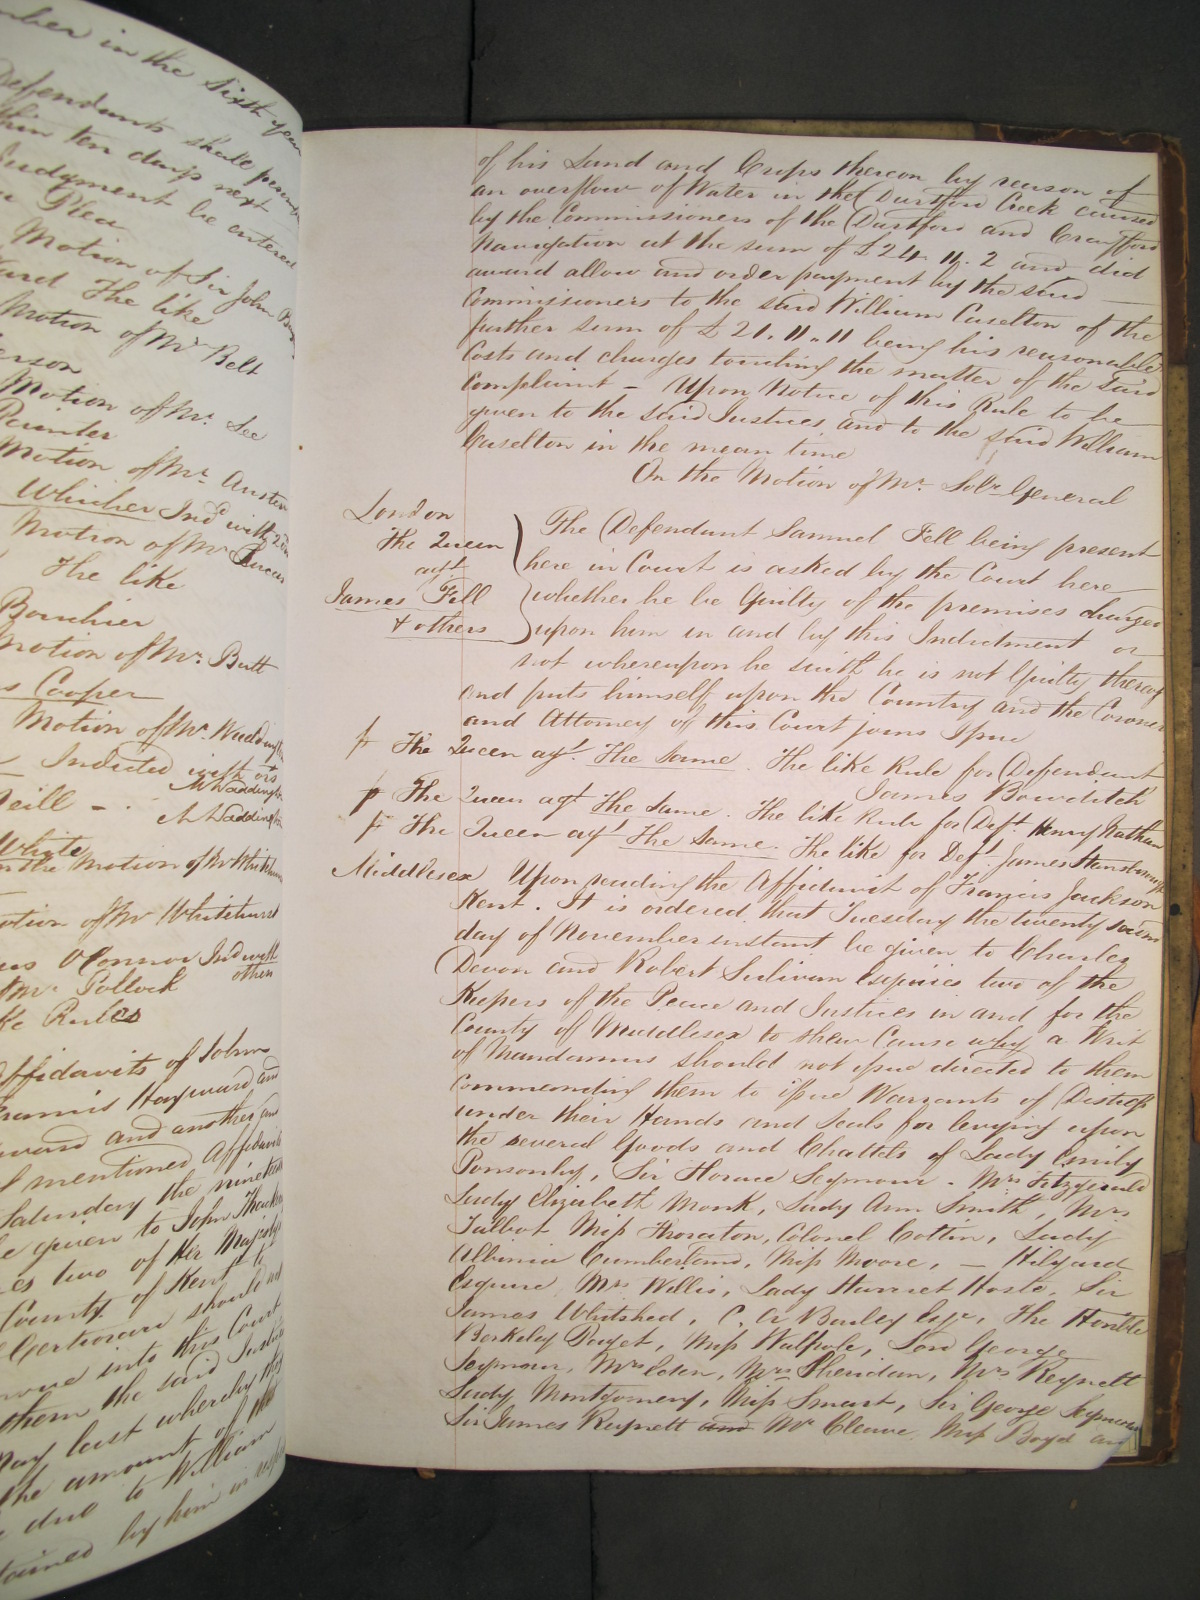 mber in the Sixth year
Defendants shall
thin ten days next
Judgment be entered
Plea
Motion of Sir John
ward The like
Motion of Mr Belt
erson
Motion of Mr. Lee
Pointer
Motion of Mr Austen
Whicher Ind with
Motion of Mr
The like
Bourhier
Motion of Mr. Butt
s Cooper
Motion of Mr. Waddington
Indicted with ors
M Waddington
Neill - .
M Waddington
White
n the Motion of Mr Whitehurst
otion of Mr Whitehurst
us O'Connor Ind with others
Mr. Pollock
ke Rules
Affidavits of John
Francis Hayward and
ward and another and
l mentioned Affidavits
Saturday the nineteen
e given to John
es two of Her Majestys
County of Kent to
Certiorari should not
move into this Court
them the said Justices
May last whereby they
the amount of the
due to William
tained by him in
of his Land and Crops thereon by reason of
an overflow of Water in the Dartford Creek caused
by the Commissioners of the Dartford and Crayford
Navigation at the sum of £24. 11. 2 and did
award allow and order payment by the said
Commissioners to the said William Caselton of the
further sum of £21. 11. 11 being his reasonable
Costs and charges touching the matter of the said
Complaint – Upon Notice of this Rule to be
given to the said Justices and to the said William
Caselton in the mean time
On the Motion of Mr. Solr. General
London
The Queen
agt
James Fell
& others
The Defendant Samuel Fell being present
here in Court is asked by the Court here
whether he be Guilty of the premises charged
upon him in and by this Indictment or
not whereupon he saith he is not Guilty thereof
and puts himself upon the Country and the Coroner
and Attorney of this Court joins Issue
The Queen agt. The Same. The like Rule for Defendant
James Bowditch
The Queen agt The Same. The like Rule for Deft. Henry Nathan
The Queen agt The Same. The like for Deft. James Stansbury
Middlesex Upon reading the Affidavit of Francis Jackson
Kent. It is ordered that Tuesday the twenty second
day of November instant be given to Charles
Devon and Robert Sulivan Esquires two of the
Keepers of the Peace and Justices in and for the
County of Middlesex to shew Cause why a Writ
of Mandamus should not issue directed to them
commanding them to issue Warrants of Distress
under their Hands and Seals for levying upon
the several Goods and Chattels of Lady Emily
Ponsonby, Sir Horace Seymour - Mrs Fitzgerald
Lady Elizabeth Monk, Lady Ann Smith, Mrs
Talbot Miss Thoraton, Colonel Cottin, Lady
Albinia Cumberland, Miss Moore, – Hilyard
Esquire, Mrs Willis, Lady Harriet Hoste, Sir
James Whitshed, C. A Bailey Esqr, The Honble
Berkeley Paget, Miss Walpole, Lord George
Seymour, Mrs Eden, Mrs Sheridan, Mrs Reynett
Lady Montgomery, Miss Smart, Sir George Seymour
Sir James Reynett and Mr Cleave, Miss Boyd and